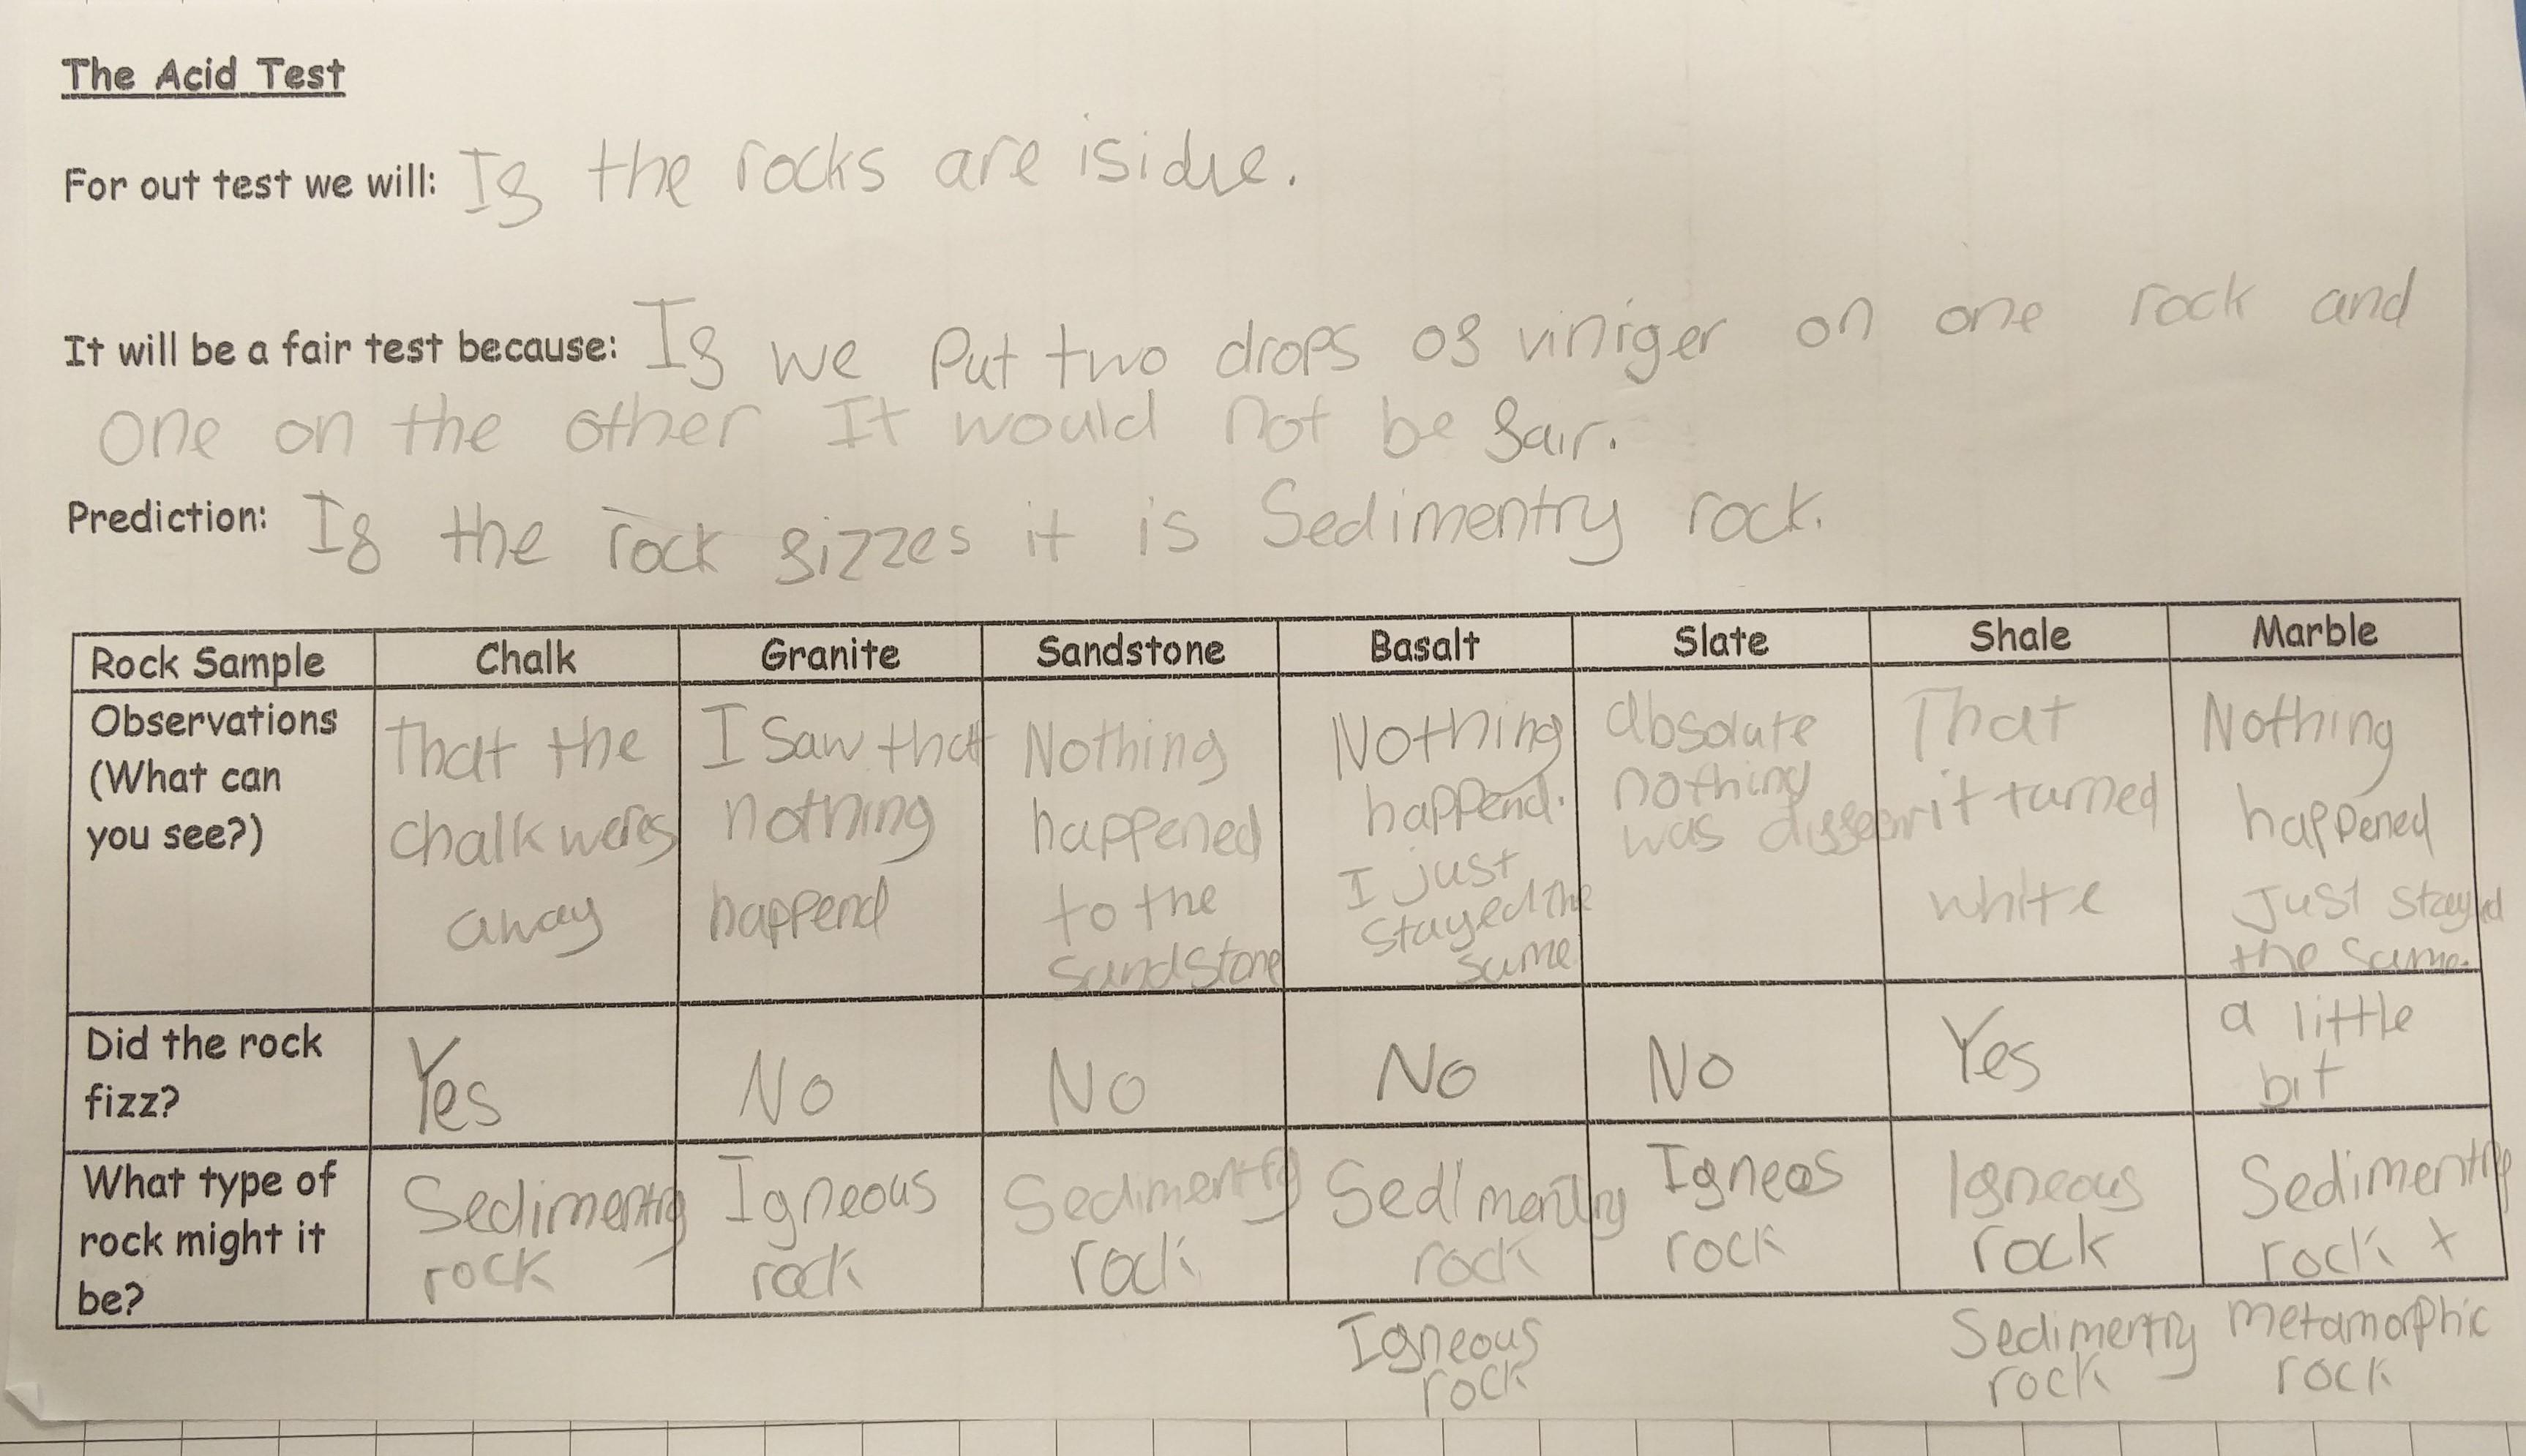 The Acid Test
For out test we will: If the rocks are isidue.
It will be a fair test because: If we put two drops of viniger on one rock and
one on the other It would not be fair.
Prediction: If the rock fizzes it is Sedimentry rock.
Rock Sample Chalk Granite Sandstone Basalt Slate Shale Marble
Observations
(What can
you see?)
That the
chalk weres
away
I Saw that
nothing
happend
Nothing
happened
to the
sandstone
Nothing
happend.
I just
stayed the
same
absolute
nothing
was differnt
That
it turned
white
Nothing
happened
Just stayed
the same.
Did the rock
fizz?
Yes
No
No
No
No
Yes
a little
bit
What type of
rock might it
be?
Sedimentry
rock
Igneous
rock
Sedimentry
rock
Sedimentry
rock
Igneos
rock
Igneous
rock
Sedimentry
rock x
Igneous
rock
Sedimentry
rock
metamorphic
rock